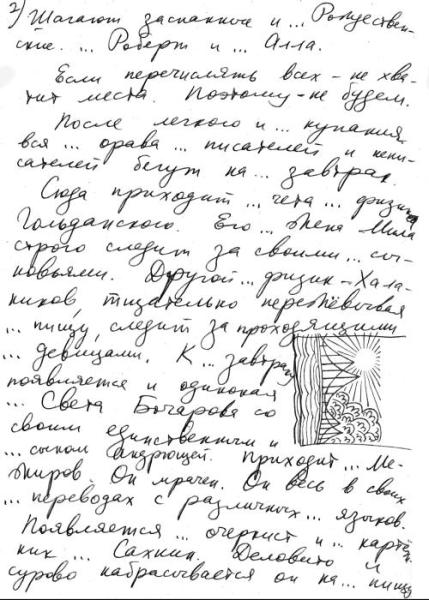 2) Шагают заспанные и ... Рождествен-
ские. ... Роберт и ... Алла.
Если перечислять всех – не хва-
тит места. Поэтому – не будем.
После легкого и ... купания
вся ... орава ... писателей и непи-
сателей бегут на ... завтрак.
Сюда приходит ... чета ... физика
Гольданского. Его ... жена Мила
строго следит за своими ... сы-
новьями. Другой ... физик – Хала-
тников, тщательно пережёвывая
... пищу, следит за проходящими
... девицами. К ... завтраку
появляется и одинокая
... Света Бочарова со
своим единственным и
... сыном Андрюшей. Приходит ... Ме-
жиров. Он мрачен. Он весь в своих
... переводах с различных ... языков.
Появляется ... очеркист и ... картёж-
ник ... Сахнин. Деловито и
сурово набрасывается он на ... пищу